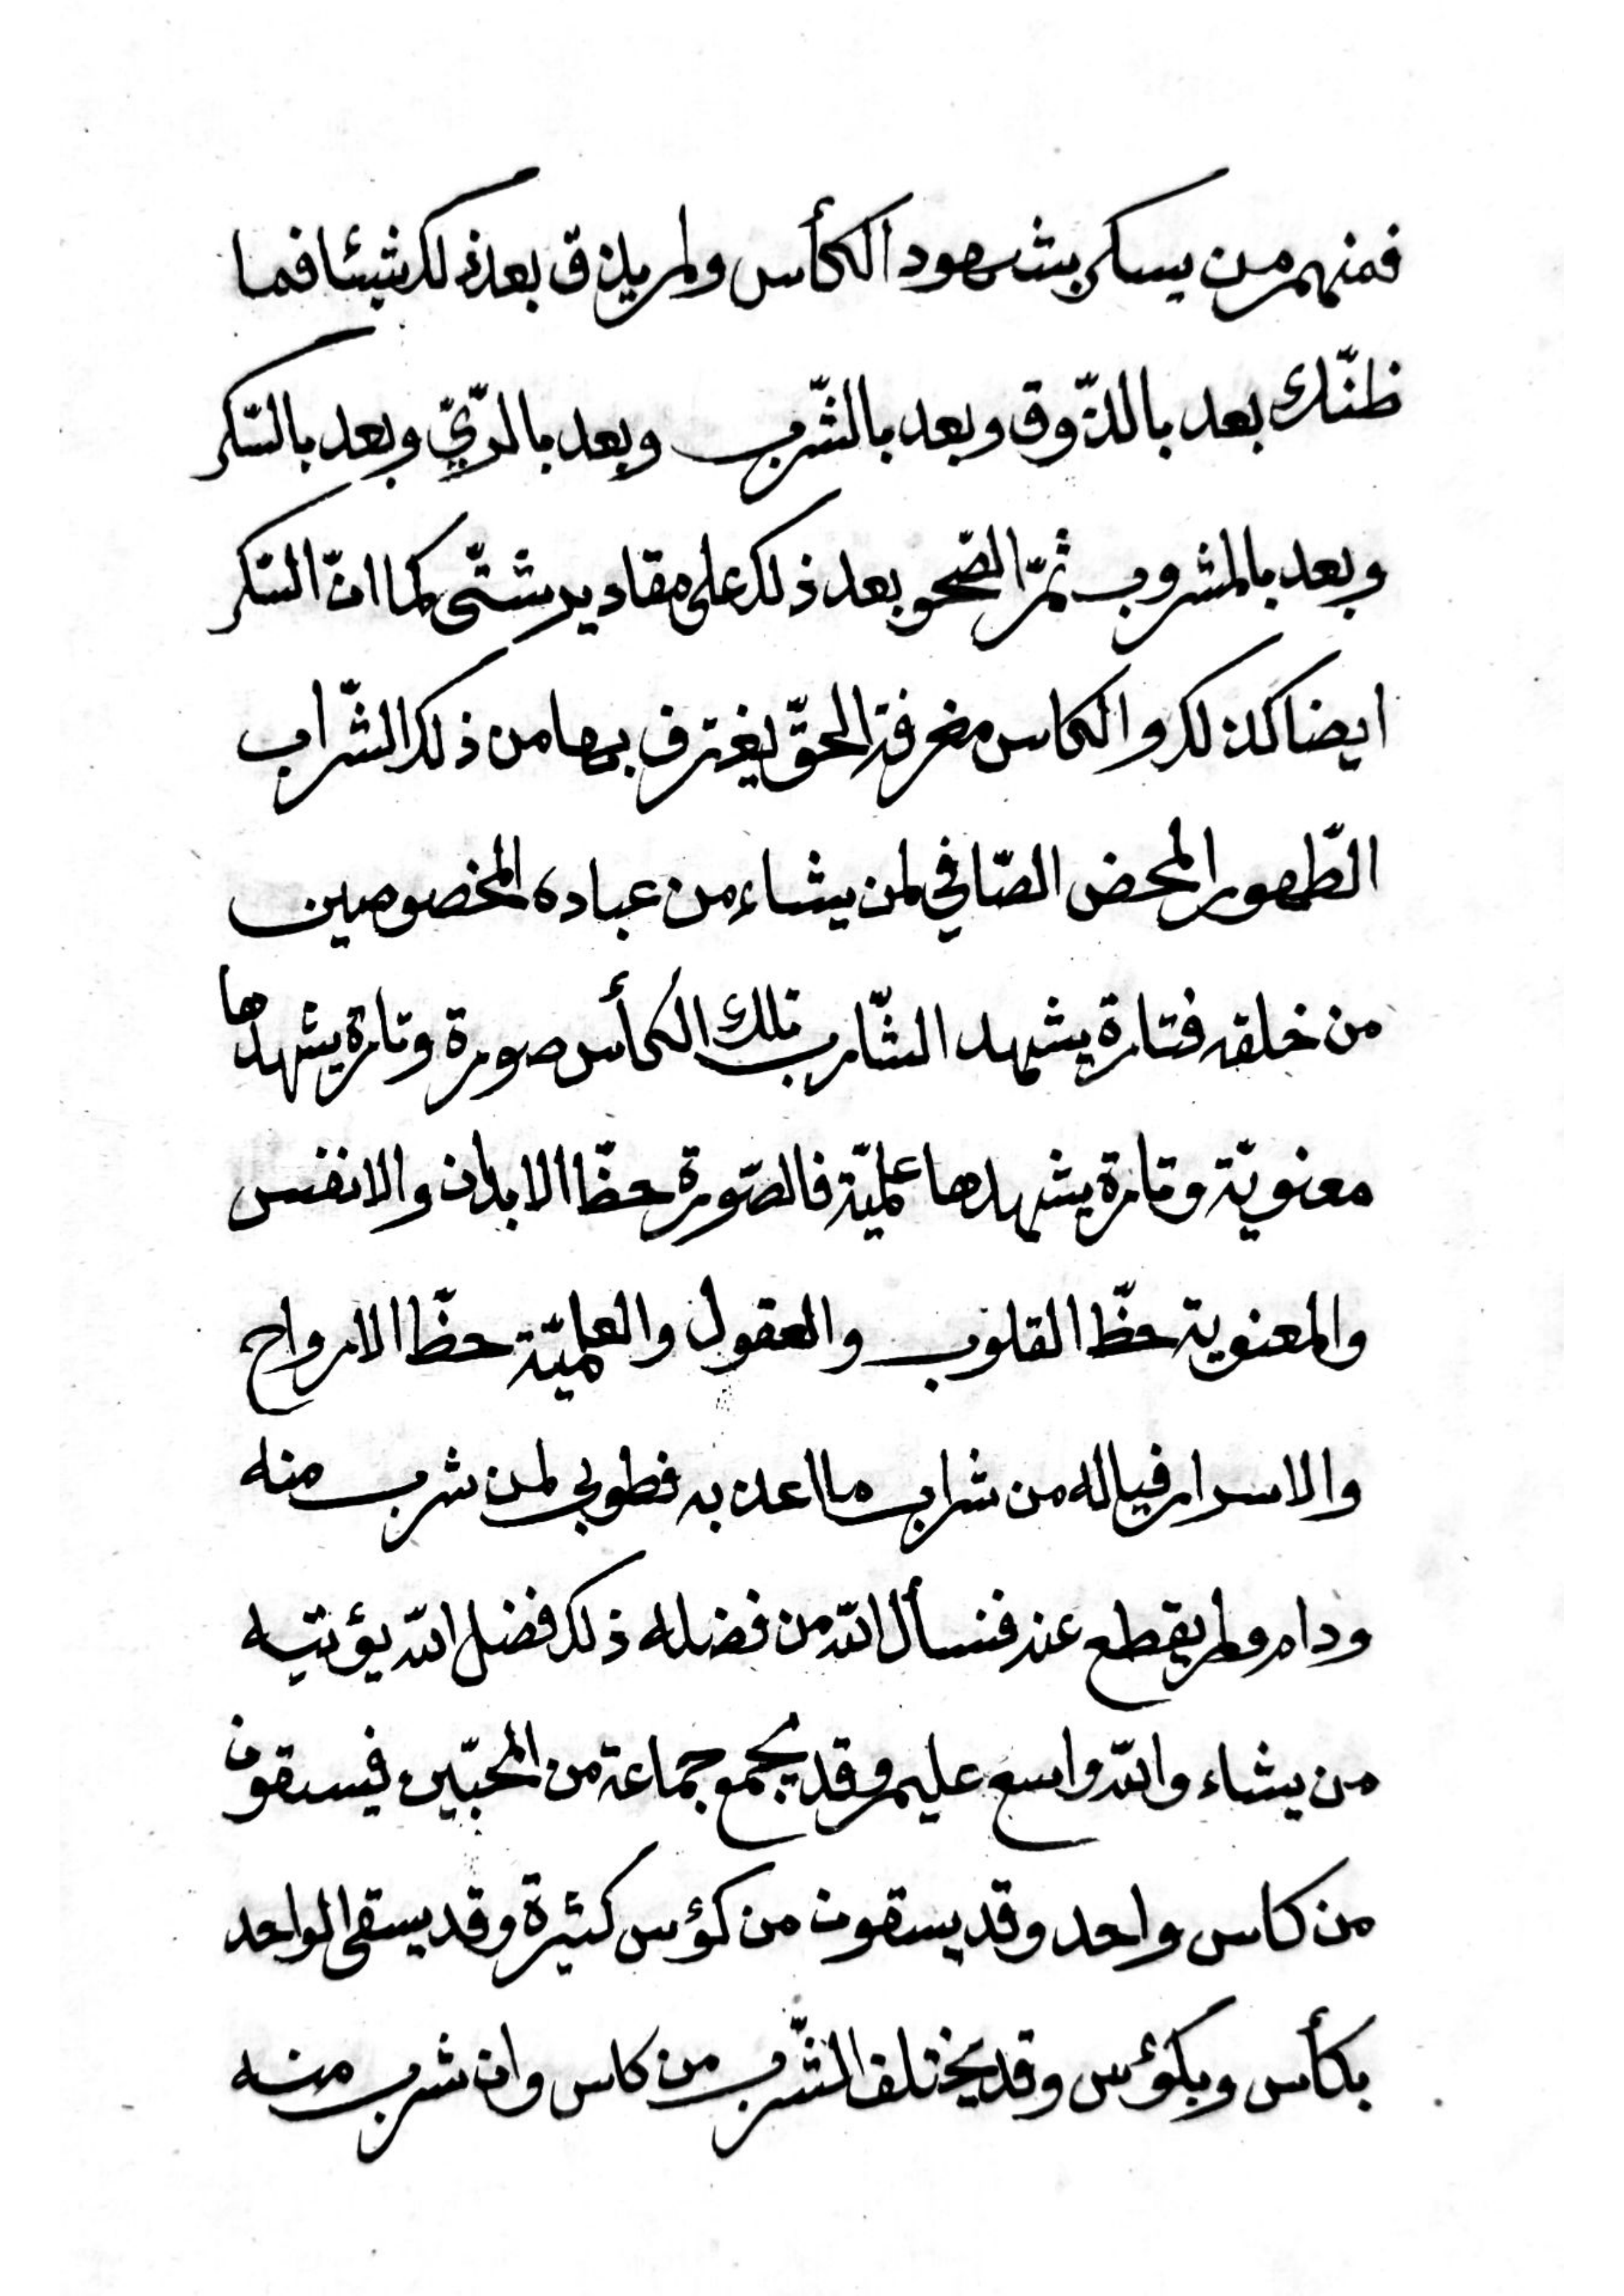 فمنهم من يسكر بشهود الكأس ولم يذق بعد ذلك شيئا فما
ظنّك بعد بالذّوق وبعد بالشّرب وبعد بالرّيّ وبعد بالسّكر
وبعد بالمشروب ثمّ الصّحو بعد ذلك على مقادير شتّى كما انّ السّكر
ايضا كذلك والكاس مغرفة الحقّ يغترف بها من ذلك الشّراب
الطّهور المحض الصّافي لمن يشاء من عباده المخصوصين
من خلقه فتارة يشهد الشّارب تلك الكأس صورة وتارة يشهدها
معنويّة وتارة يشهدها علميّة فالصّورة حظّ الابدان والانفس
والمعنوية حظّ القلوب والعقول والعلميّة حظّ الارواح
والاسرار فياله من شراب ما اعذبه فطوبي لمن شرب منه
ودام ولم يقطع عنه فنسأل الله من فضله ذلك فضل الله يؤتيه
من يشاء والله واسع عليم وقد يجمع جماعة من المحبّين فيسقون
من كاس واحد وقد يسقون من كؤس كثيرة وقد يسقى الواحد
بكأس وبكؤس وقد يختلف الشّرب من كاس وان شرب منه